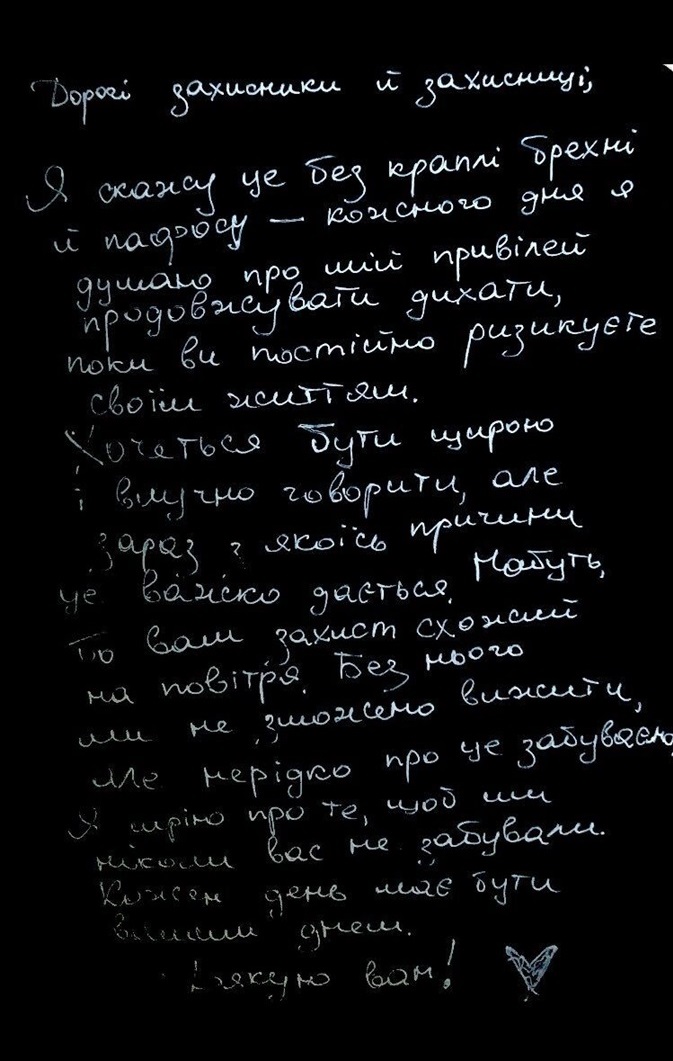 Дорогі захисники й захисниці,
Я скажу це без краплі брехні
й пафосу — кожного дня я
думаю про мій привілей
продовжувати дихати,
поки ви постійно ризикуєте
своїм життям.
Хочеться бути щирою
і влучно говорити, але
зараз з якоїсь причини
це важко дається. Мабуть,
бо ваш захист схожий
на повітря. Без нього
ми не зможемо вижити,
але нерідко про це забуваємо
Я мрію про те, щоб ми
ніколи вас не забували.
Кожен день має бути
вашим днем.
Дякую вам!